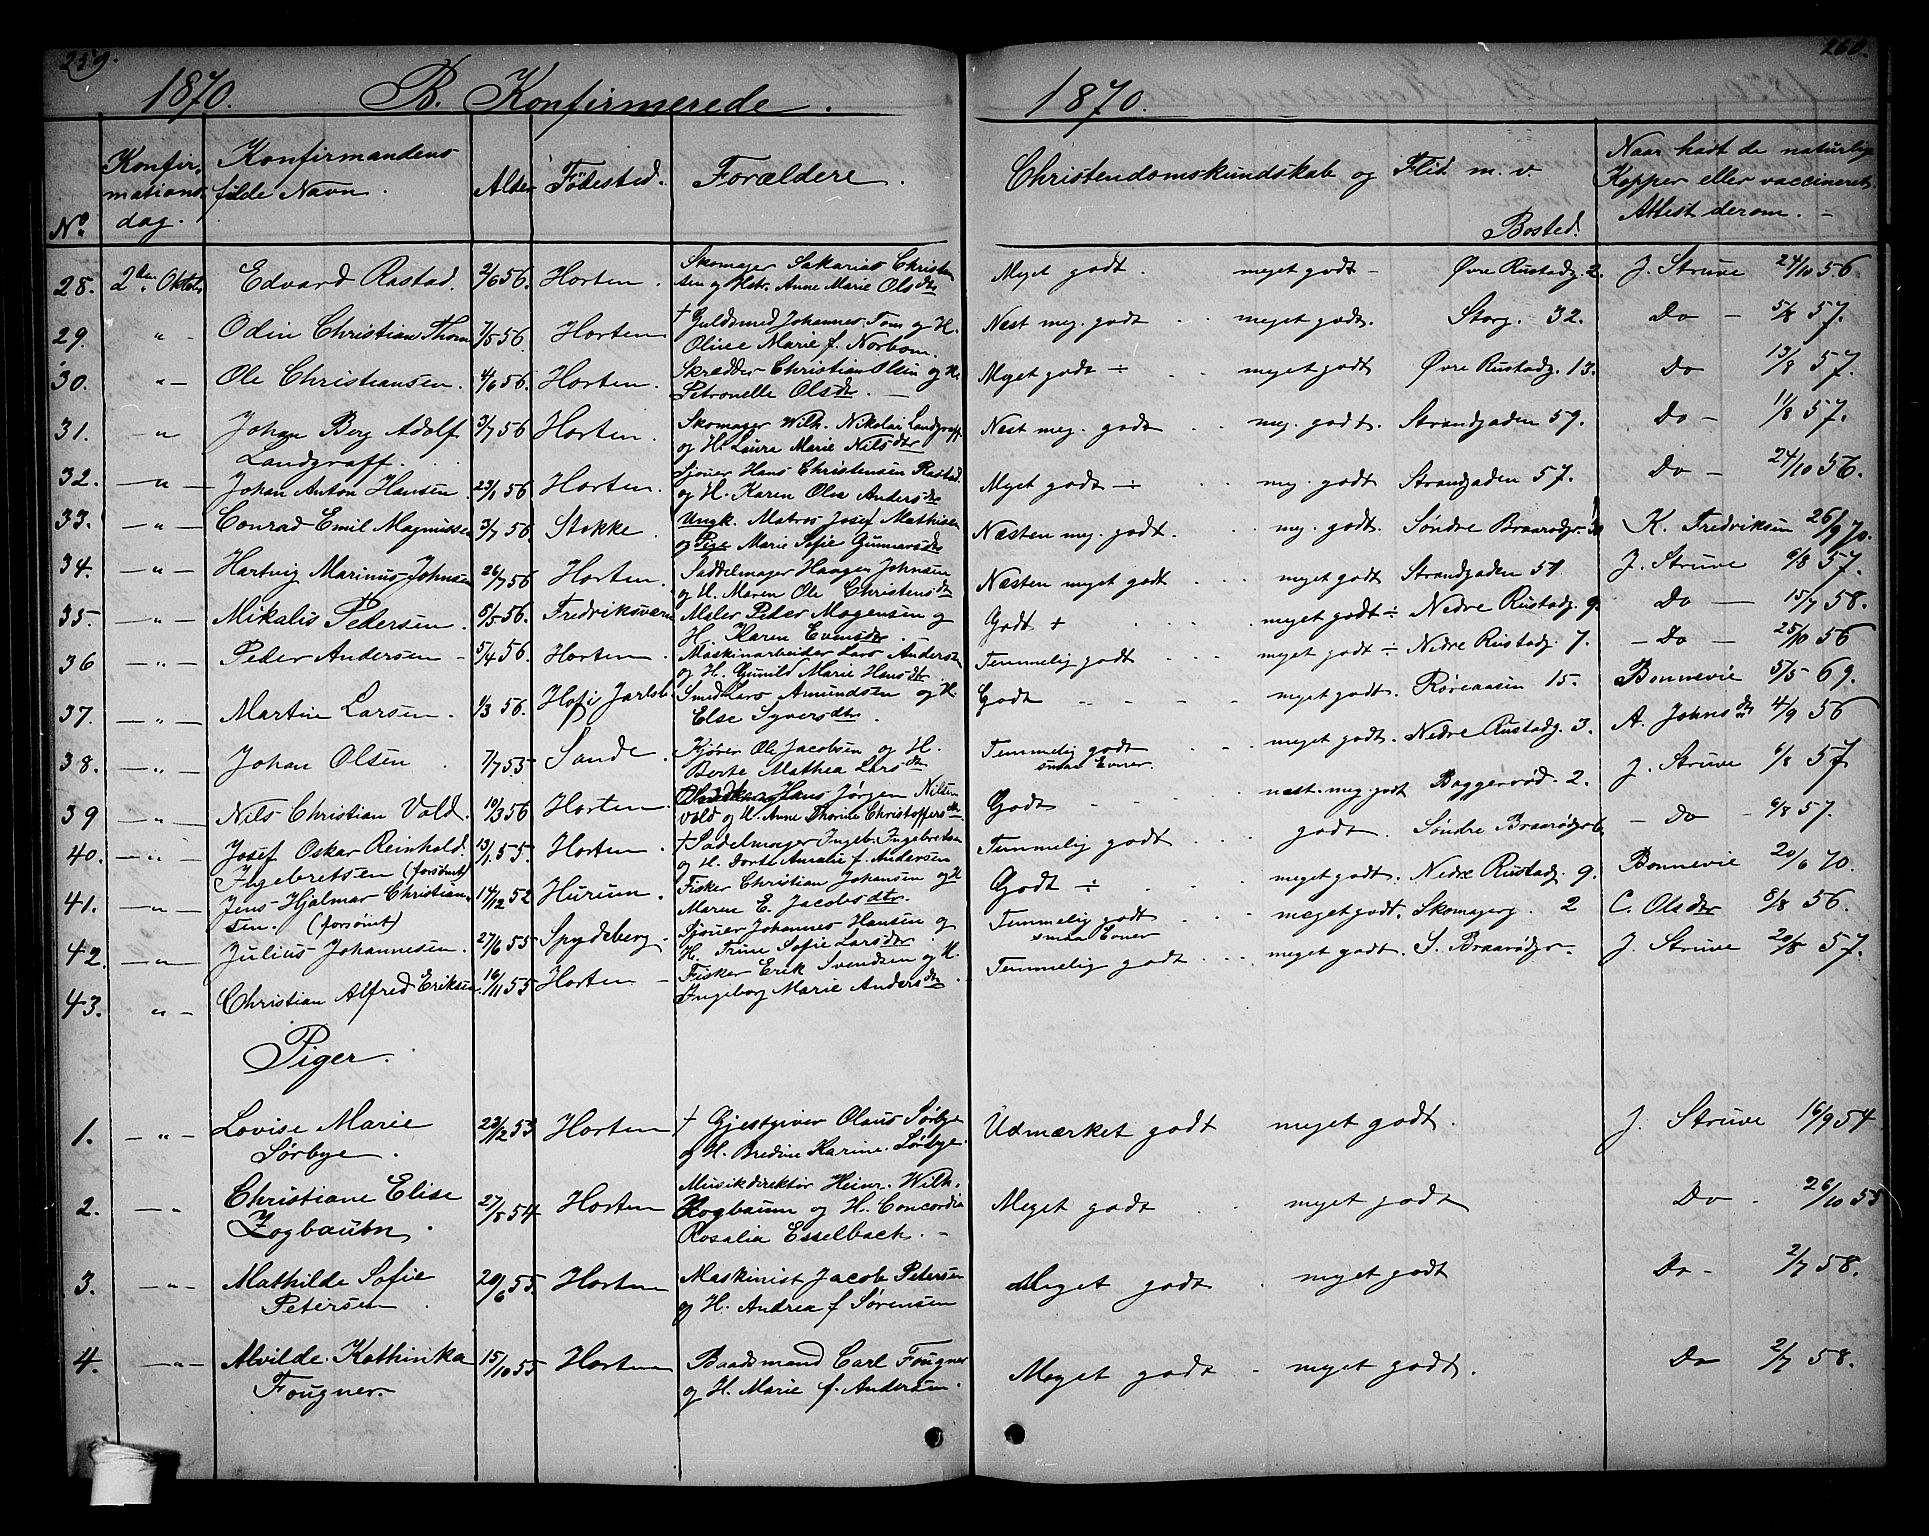 259.
1870. B. Konfirmerede.
No
Konfir-
mations
dag.
Konfirmandens
fulde Navn.
Alder
Födested.
Forældere.
28. 2den Oktob. Edvard Rastad. 2/6 56. Horten. Skomager Sakarias Christen
sen og Hstr. Anne Marie Olsdtr
29. " Odin Christian Thom 7/5 56. Horten † Guldsmed Johannes Tom og H.
Oline Marie f. Norbom.
30. " Ole Christiansen. 4/6 56. Horten. Skrædder Christian Olsen og H.
Petronelle Olsdtr.
31. " Johan Berg Adolf 3/7 56 Horten. Skomager Wilh. Nikolai Landgraff
Landgraff. og H. Laura Marie Nilsdtr
32. " Johan Anton Hansen. 23/1 56 Horten. Sjouer Hans Christensen Rastad
og H. Karen Olea Andersdtr
33. " Conrad Emil Magnussen 3/7 56 Stokke. Ungk. Matros Josef Mathisen
og Pige Marie Sofie Gunnarsdtr
34. " Hartvig Marinus Johnsen 26/7 56 Horten. Saddelmager Haagen Johnsen
og H. Maren Ole Christensdtr
35. " Mikalis Pedersen. 5/5 56. Fredriksværn Maler Peder Mogensen og
H. Karen Evensdtr.
36 " Peder Andersen 5/4 56. Horten. Maskinarbeider Lars Andersen
og H. Gunild Marie Hansdtr
37. " Martin Larsen. 1/3 56. Hof i Jarlsb. Smed Lars Amundsen og H.
Else Syversdtr.
38. " Johan Olsen 7/7 55 Sande. Kjörer Ole Jacobsen og H.
Berte Mathea Larsdtr
39 " Nils Christian Vold. 10/3 56 Horten. Hans Jørgen Nilsen
Vold og H. Anne Thorine Christoffersdtr
40. " Josef Oskar Reinhold. 13/1 55. Horten. † Sadelmager Ingeb. Ingebretsen
Ingebretsen (forsömt) og H. Dorte Amalie f. Andersen
41. " Jens Hjalmar Christian- 14/12 52 Hurum. Fisker Christian Johansen og H
sen. (forsömt) Maren E. Jacobsdtr.
42. " Julius Johannesen. 27/6 55 Spydeberg. Sjouer Johannes Hansen og
H. Trine Sofie Larsdtr.
43. " Christian Alfred Eriksen. 16/11 55 Horten Fisker Erik Svendsen og H.
Ingeborg Marie Andersdtr
Piger.
1. " Lovise Marie 23/2 53 Horten † Gjestgiver Olaus Sørbye
Sørbye. og H. Bredine Karine Sørbye.
2. " Christiane Elise 27/5 54 Horten Musikdirektør Heinr. Wilh.
Zogbaum. Zogbaum og H. Concordia
Rosalia Esselbach.
3. " Mathilde Sofie 20/6 55. Horten Maskinist Jacob Petersen
Petersen og H. Andrea f Sørensen
4. " Alvilde Kathinka 15/10 55 Horten Baadsmand Carl Fougner
Fougner. og H. Marie f. Andersen.
260.
1870.
Christendomskundskab og Flid m. v
Bosted.
Naar havt de naturlige
Kopper eller vaccineret.
Attest derom.
Meget godt. meget godt Øvre Rustadg. 2. J. Struve 24/10 56
Næst meg. godt meget godt. Storg. 32. Do 5/8 57.
Meget godt ÷ meget godt Øvre Rustadg. 13. Do 13/8 57.
Næst meg. godt meg. godt. Strandgaden 59. Do 11/8 57.
Meget godt ÷ meg. godt Strandgaden 57. Do 24/10 56.
Næsten meg. godt. meg. godt. Søndre Braarødg. K. Fredriksen 26/9 70.
Næsten meget godt meget godt Strandgaden 51 J. Struve 6/8 57.
Godt + meget godt ÷ Nedre Rustadg. 9. Do 15/7 58.
Temmelig godt meget godt ÷ Nedre Rustadg. 7. Do 25/10 56
Godt meget godt. Røreaasen 15. Bonnevie 5/5 69.
Temmelig godt meget godt. Nedre Rustadg. 3. A. Johnsdtr 4/9 56
smaa Evner.
Godt næst. meg. godt Baggerød. 2. J. Struve 6/8 57
Temmelig godt godt. Søndre Braarødg. Do 6/8 57.
Godt ÷ meget godt. Nedre Rustadg. 9. Bonnevie 20/6 70.
Temmelig godt meget godt. Skomagerg. 2 C. Olsdtr 8/8 56.
smaa Evner
Temmelig godt meget godt. S. Braarødg. J. Struve 20/8 57.
Udmærket godt meget godt. J. Struve 16/9 54
Meget godt meget godt Do 26/10 55
Meget godt meget godt Do 2/7 58.
Meget godt meget godt. Do 2/7 58.